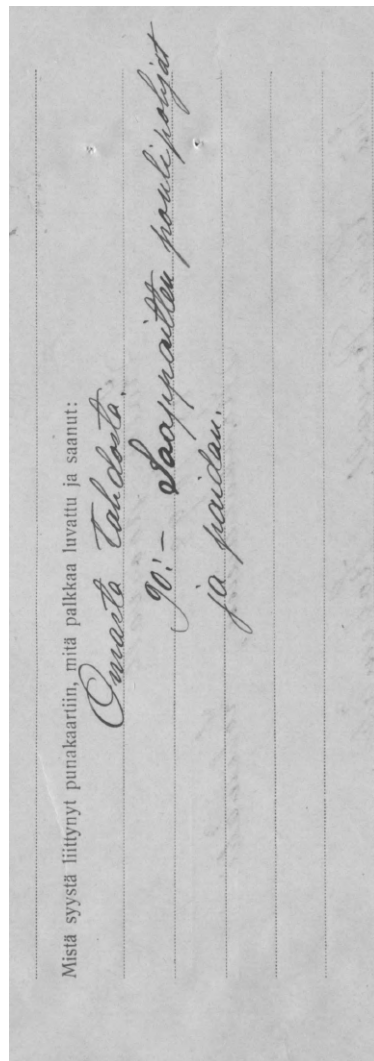 Mistä syystä liittynyt punakaartiin, mitä palkkaa luvattu ja saanut:
Omasta tahdosta.
90:- Saappaitten puolipohjat
ja paidan.